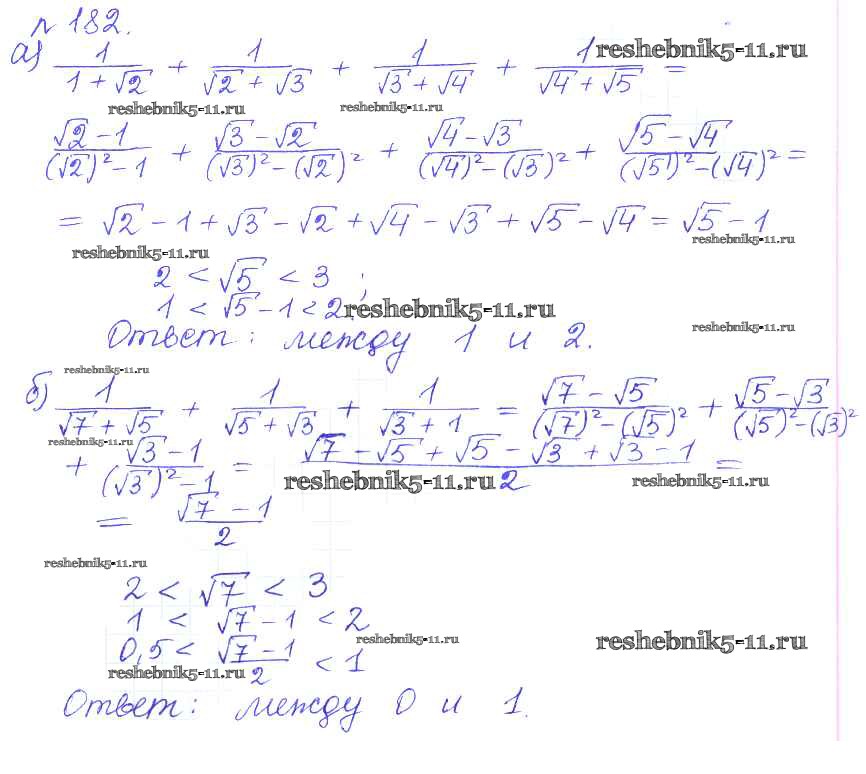 № 182.
а) 1/(1 + √2) + 1/(√2 + √3) + 1/(√3 + √4) + 1/(√4 + √5) =
reshebnik5-11.ru
reshebnik5-11.ru reshebnik5-11.ru
(√2 - 1)/((√2)² - 1) + (√3 - √2)/((√3)² - (√2)²) + (√4 - √3)/((√4)² - (√3)²) + (√5 - √4)/((√5)² - (√4)²) =
= √2 - 1 + √3 - √2 + √4 - √3 + √5 - √4 = √5 - 1
reshebnik5-11.ru reshebnik5-11.ru
2 < √5 < 3 ;
1 < √5 - 1 < 2,
reshebnik5-11.ru
Ответ: между 1 и 2.
reshebnik5-11.ru
reshebnik5-11.ru
б) 1/(√7 + √5) + 1/(√5 + √3) + 1/(√3 + 1) = (√7 - √5)/((√7)² - (√5)²) + (√5 - √3)/((√5)² - (√3)²)
reshebnik5-11.ru
+ (√3 - 1)/((√3)² - 1) = (√7 - √5 + √5 - √3 + √3 - 1)/2 =
reshebnik5-11.ru reshebnik5-11.ru
= (√7 - 1)/2
reshebnik5-11.ru
2 < √7 < 3
1 < √7 - 1 < 2
reshebnik5-11.ru reshebnik5-11.ru
0,5 < (√7 - 1)/2 < 1
reshebnik5-11.ru
Ответ: между 0 и 1.